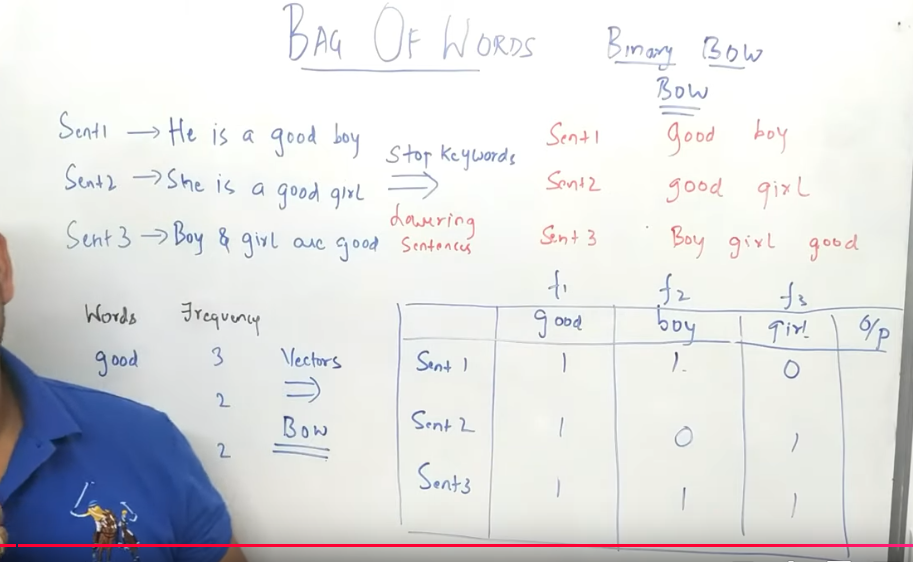 BAG OF WORDS
Binary BOW
BOW
Sent1 → He is a good boy
Sent2 → She is a good girl
Sent 3 → Boy & girl are good
Stop Keywords
⇒
Lowering
Sentences
Sent1 good boy
Sent2 good girl
Sent 3 Boy girl good
Words Frequency
good 3
2
2
Vectors
⇒
BOW
f1 f2 f3
good boy girl O/p
Sent 1 1 1 0
Sent 2 1 0 1
Sent3 1 1 1